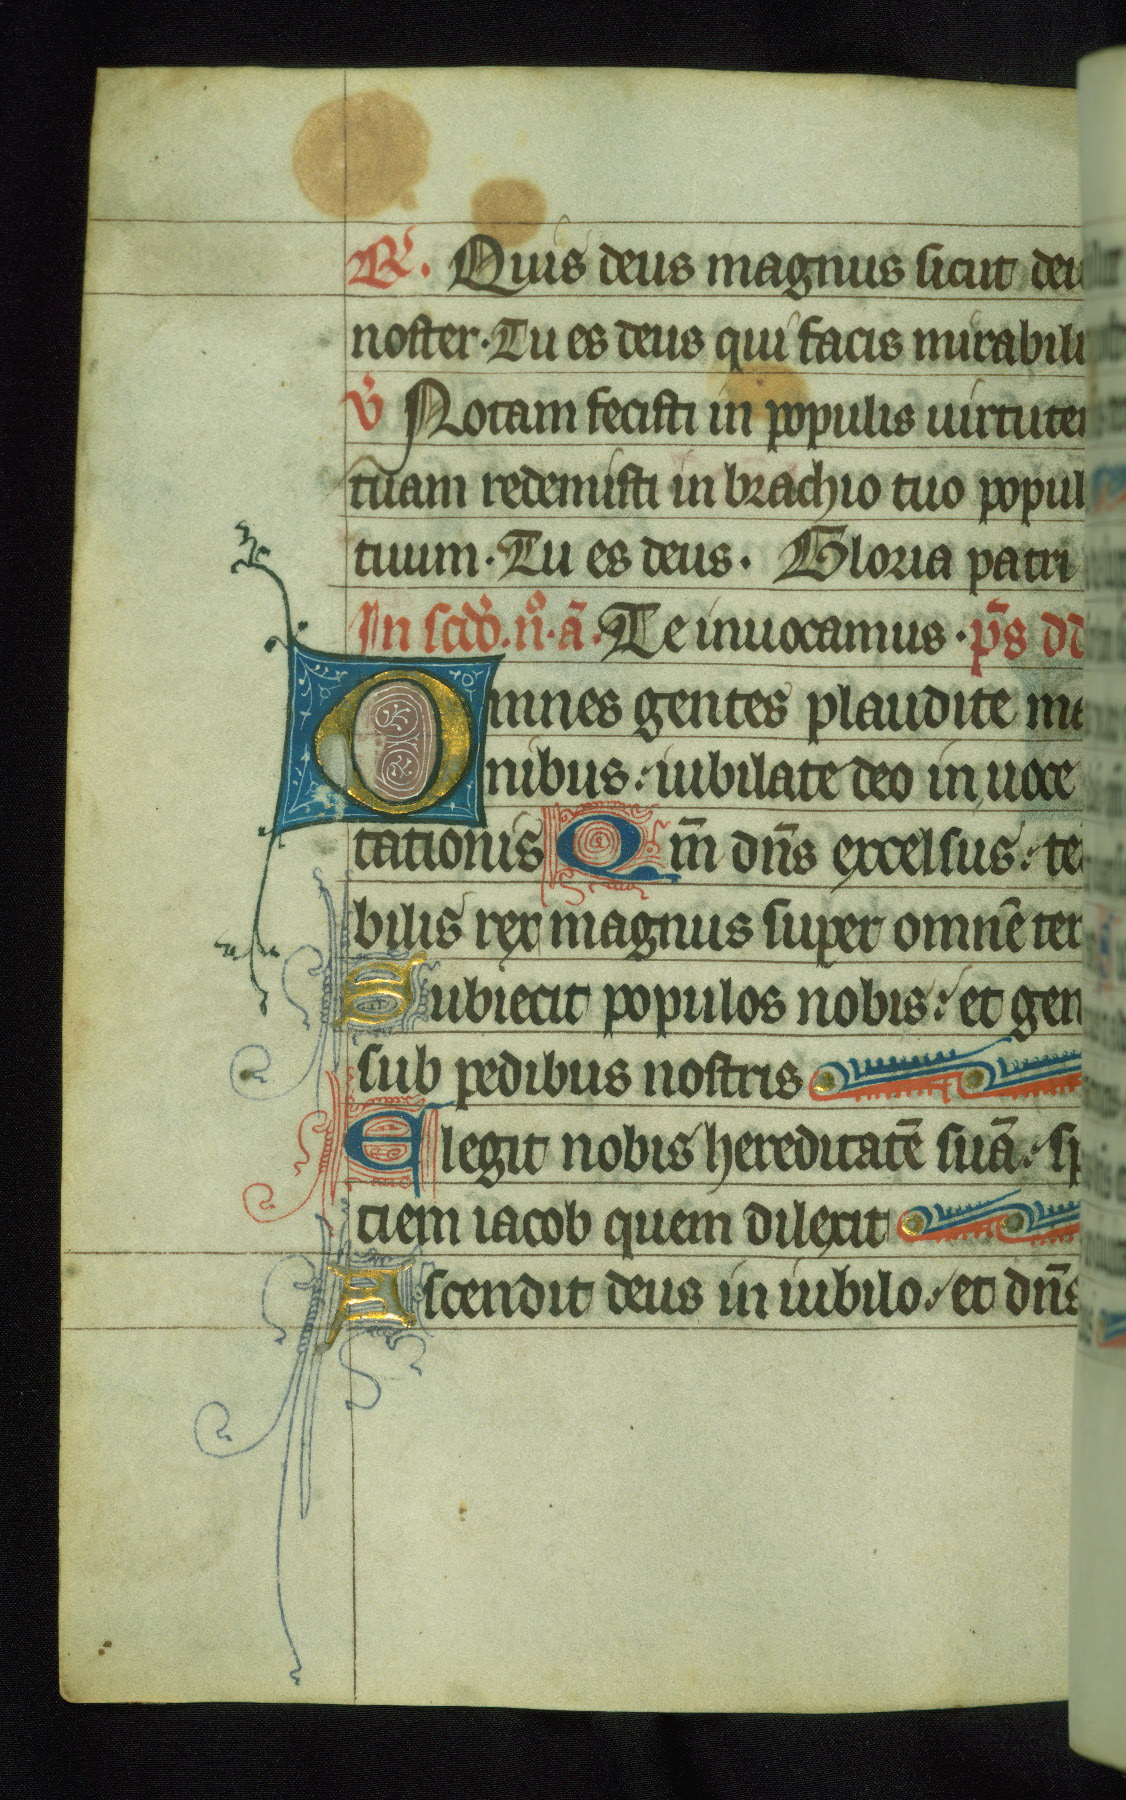 R. Quis deus magnus sicut
noster. Tu es deus qui facis
v Notam fecisti in populis
tuam redemisti in brachio tuo
tuum. Tu es deus. Gloria patri
In scdo. n̊. ā. Te inuocamus. p̄s
Omnes gentes plaudite
nibus: iubilate deo in uoce
tationis Qm̄ dn̄s excelsus:
bilis rex magnus super omnē
Subiecit populos nobis: et
sub pedibus nostris
Elegit nobis hereditatē suā:
ciem iacob quem dilexit
Ascendit deus in iubilo: et dn̄s